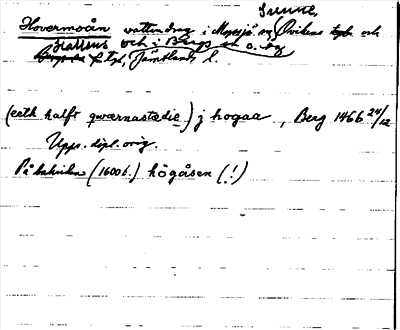 Sunne,
Hovermoån vattendrag i Myssjö og Ovikens tgla och
Hallens och i Bergs sn o. tg
f tgl, Jämtlands l.
(eeth halft qwærnastædie) j hogaa, Berg 1466 24/12
Upps. dipl. orig.
På baksidan (1600 t.) högåsen (!)